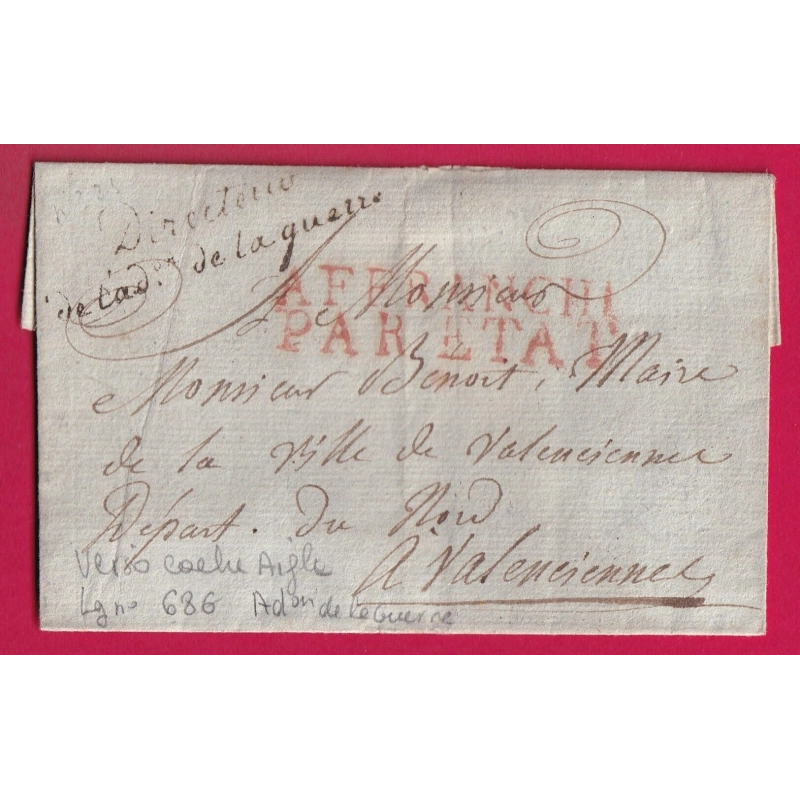 Directeur
de l'ad.on de la guerre
AFFRANCHI
PAR ETAT
Monsieur
Monsieur Benoit, Maire
de la Ville de Valenciennes
Départ. du Nord
A Valenciennes
Verso cachet Aigle
686 Adon de la Guerre